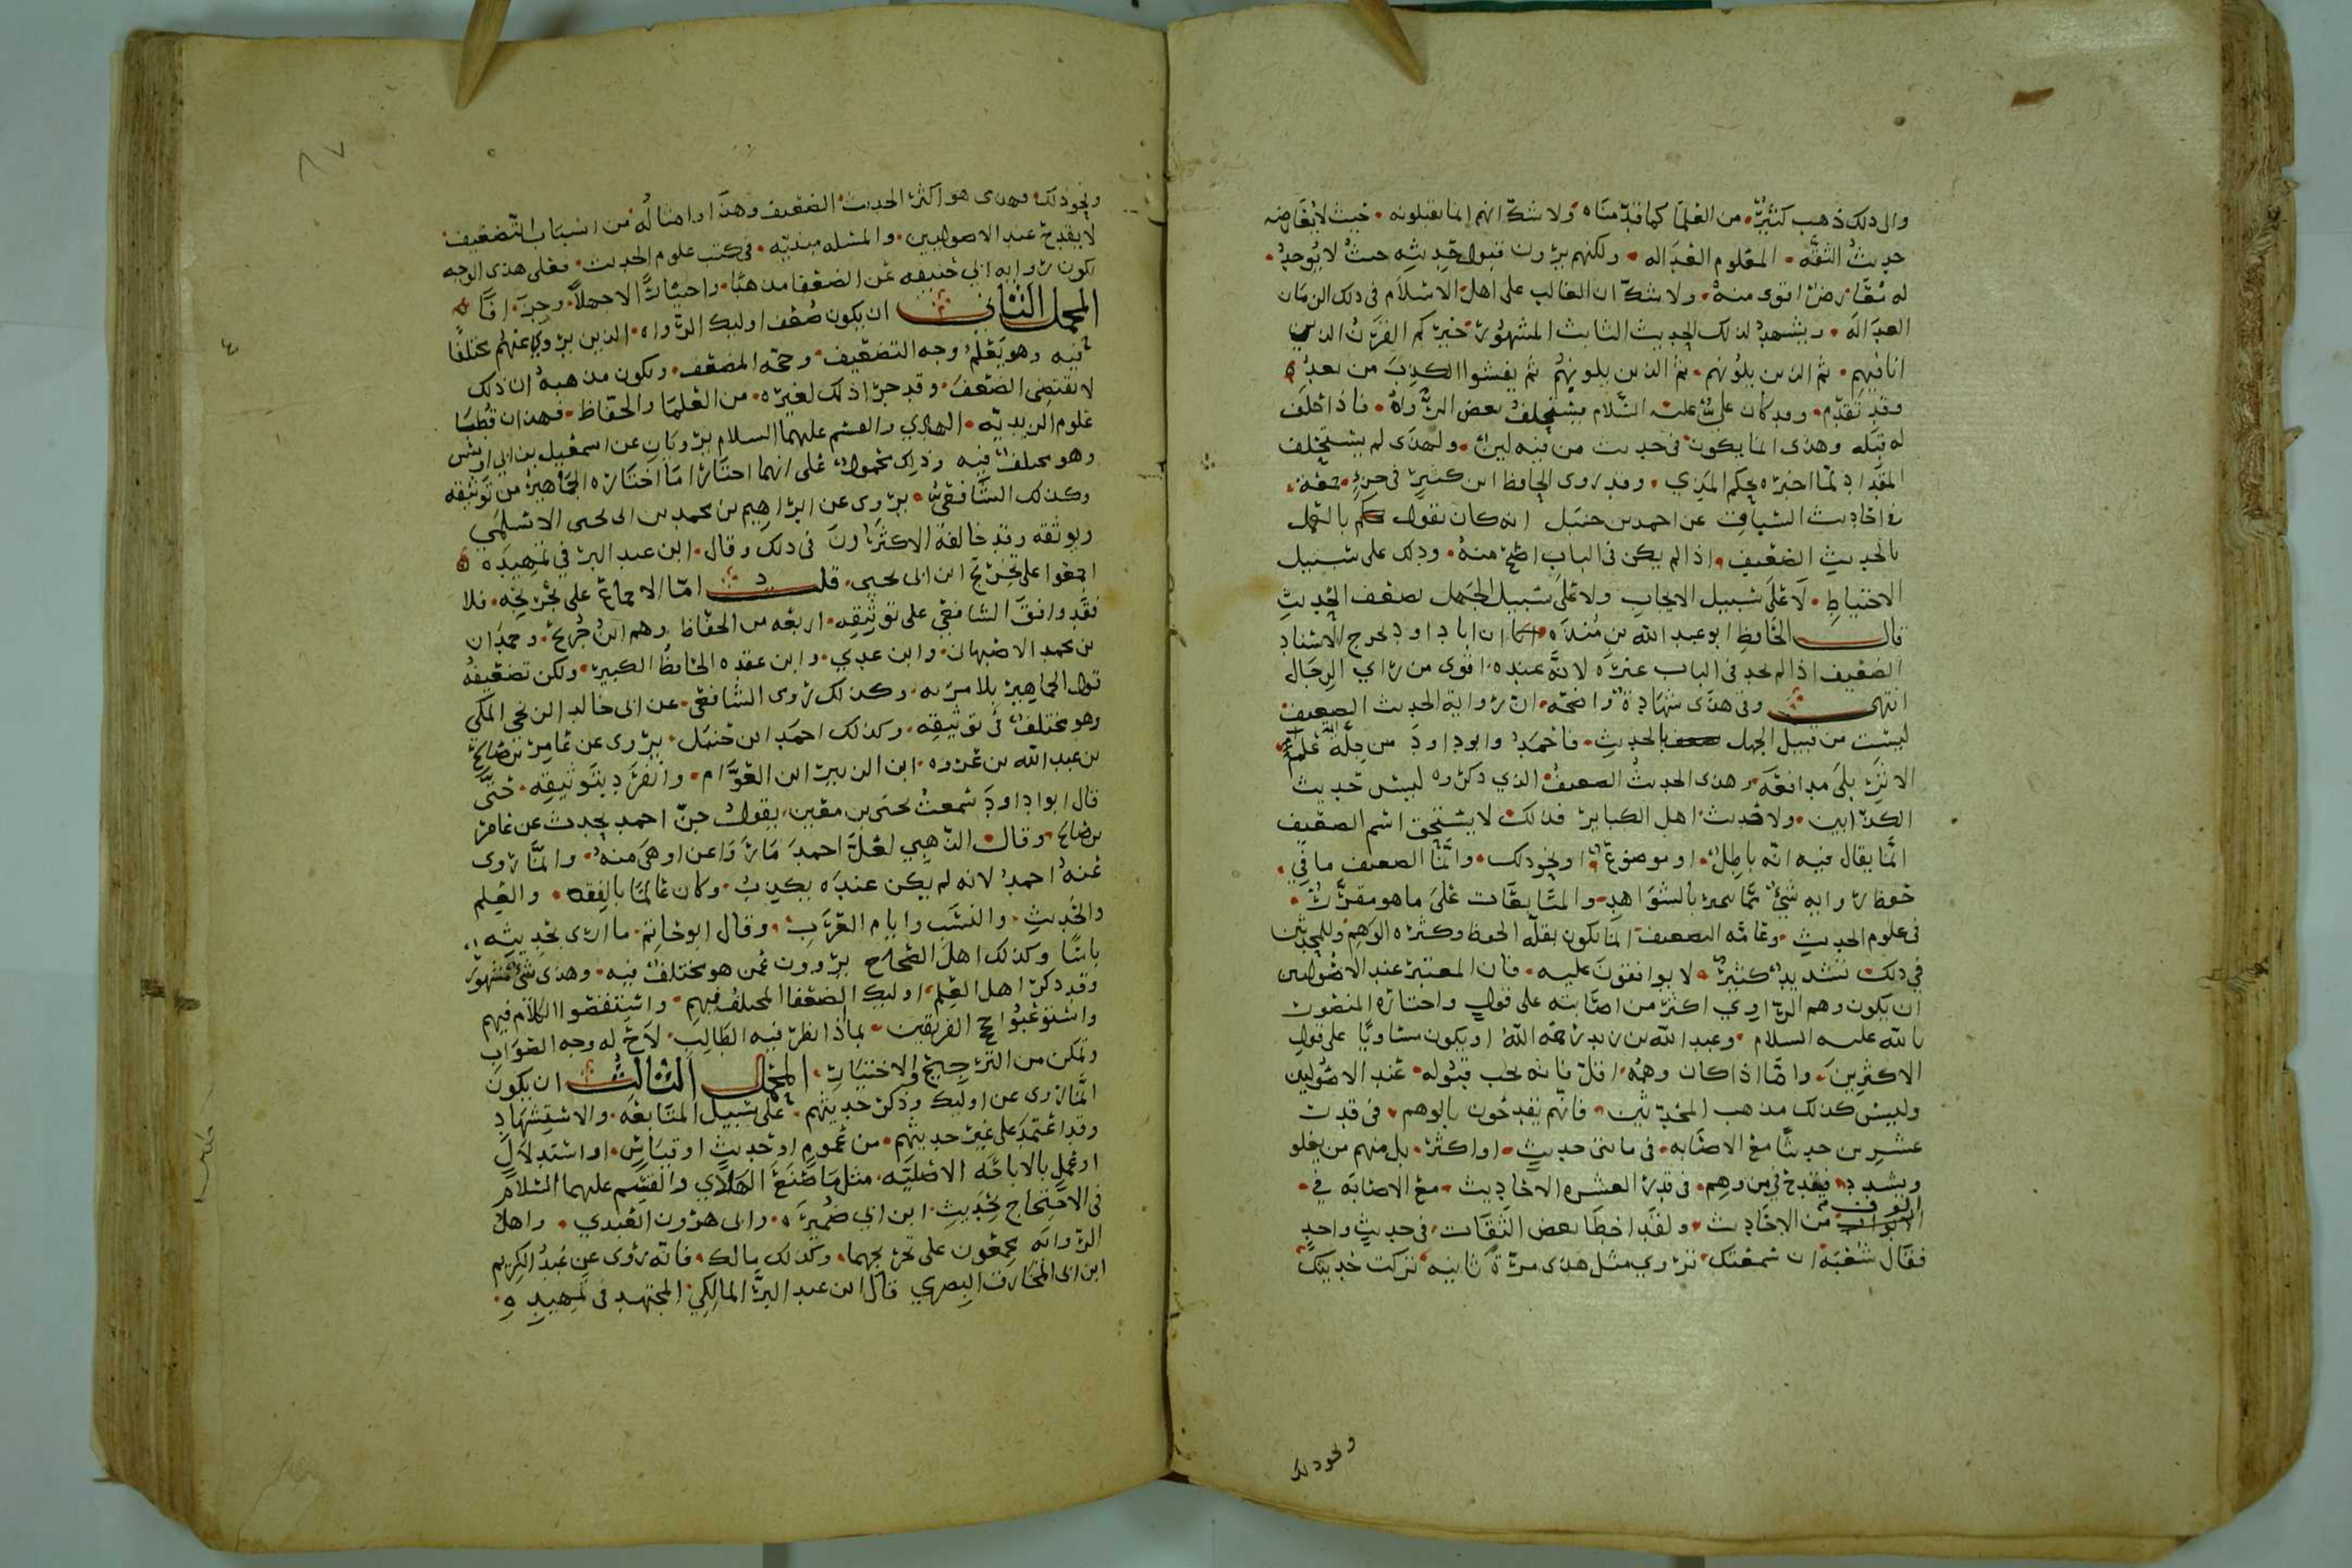 والى ذلك ذهب كثير من العلما كما قدمناه ولا شك انهم انما يقبلونه حيث لا يعارضه
حديث الثقة المعلوم العداله ولكنهم يرون قبول حديثه حيث لا يوجد
له معارض اقوى منه ولا شك ان الغالب على اهل الاسلام في ذلك الزمان
العداله ويشهد لذلك الحديث الثابت المشهور خيركم القرن الذين
انا فيهم ثم الذين يلونهم ثم الذين يلونهم ثم يفشوا الكذب من بعد
وقد تقدم وقد كان علي عليه السلام يستحلف بعض الرواه فاذا حلف
له قبله وهذى انما يكون في حديث من فيه لين ولهذى لم يستحلف
المقداد لما اخبره بحكم المذي وقد روى الحافظ ابن كثير في جزء جمعه
في احاديث السباق عن احمد بن حنبل انه كان يقول بالعمل
بالحديث الضعيف اذا لم يكن في الباب اصح منه وذلك على سبيل
الاحتياط لا على سبيل الايجاب ولا على سبيل الجهل بضعف الحديث
قال الحافظ ابو عبد الله بن منده ان ابا داود يخرج الاسناد
الضعيف اذا لم يجد في الباب غيره لانه عنده اقوى من راي الرجال
انتهى وفي هذى شهادة واضحه ان رواية الحديث الضعيف
ليست من قبيل الجهل بالحديث فاحمد وابو داود من جلة علما
الاثر بلى مدافعه وهذى الحديث الضعيف الذي ذكروه ليس حديث
الكذابين ولا حديث اهل الكباير فذلك لا يستحق اسم الضعيف
انما يقال فيه انه باطل او موضوع او نحو ذلك وانما الضعيف ما في
حفظ راويه شي مما يجبر بالشواهد والمتابعات على ما هو مقرر
في علوم الحديث وعامة التضعيف انما يكون بقلة الحفظ وكثره الوهم وللمحدثين
في ذلك تشديد كثير لا يوافقون عليه فان المعتبر عند الاصوليين
ان يكون وهم الراوي اكثر من اصابته على قول واختاره المنصور
بالله عليه السلام وعبد الله بن زيد رحمه الله او يكون مساويا على قول
الاكثرين واما اذا كان وهمه اقل فانه يجب قبوله عند الاصوليين
وليس كذلك مذهب المحدثين فانهم يقدحون بالوهم في قدر
عشرين حديثا مع الاصابه في مائتي حديث او اكثر بل منهم من يغلو
ويشدد فيقدح في من وهم في قدر العشره الاحاديث مع الاصابه في
الوف من الاحاديث ولقد اخطا بعض الثقات في حديث واحد
فقال شعبة ان سمعتك تروي مثل هذى مرة ثانيه تركت حديثك
ونحو ذلك
ونحو ذلك وهذى هو اكثر الحديث الضعيف وهذا وامثاله من اسباب التضعيف
لا يقدح عند الاصوليين والمسله مبنيه في كتب علوم الحديث فعلى هذى الوجه
تكون روايه ابي حنيفه عن الضعفا مذهبا واختيارا لا جهلا وجزافا
المحمل الثاني ان يكون ضعف اوليك الرواه الذين يروي عنهم مختلفا
فيه وهو يعلم وجه التضعيف وحجه المضعف ويكون مذهبه ان ذلك
لا يقتضي الضعف وقد جرا ذلك لغيره من العلما والحفاظ فهذان قطبا
علوم الزيديه الهادي والقسم عليهما السلام يرويان عن اسمعيل بن ابي اويس
وهو مختلف فيه وذلك محمول على انهما اختارا ما اختاره الجماهير من توثيقه
وكذلك الشافعي يروى عن ابراهيم بن محمد بن ابي يحيى الاسلمي
ويوثقه وقد خالفه الاكثرون في ذلك وقال ابن عبد البر في تمهيده
اجمعوا على تجريح ابن ابي يحيى قلت اما الاجماع على تجريحه فلا
فقد وافق الشافعي على توثيقه اربعه من الحفاظ وهم ابن جريج وحمدان
بن محمد الاصبهاني وابن عدي وابن عقده الحافظ الكبير ولكن تضعيفه
قول الجماهير بلا مريه وكذلك روى الشافعي عن ابي خالد الزنجي المكي
وهو مختلف في توثيقه وكذلك احمد ابن حنبل يروى عن عامر بن صالح
بن عبد الله بن عروه ابن الزبير ابن العوام وانفرد بتوثيقه حتى
قال ابو داود سمعت يحيى بن معين يقول جن احمد يحدث عن عامر
بن صالح وقال الذهبي لعل احمد ما روا عن اوهى منه وانما روى
عنه احمد لانه لم يكن عنده يكذب وكان عالما بالفقه والعلم
والحديث والنسب وايام العرب وقال ابو حاتم ما ارى بحديثه
باسا وكذلك اهل الصحاح يروون عمن هو مختلف فيه وهذى شي مشهور
وقد ذكر اهل العلم اوليك الضعفا المختلف فيهم واستقصوا الكلام فيهم
واستوعبوا حجج الفريقين بما اذا نظر فيه الطالب لاح له وجه الصواب
وتمكن من الترجيح والاختيار المحمل الثالث ان يكون
انما روى عن اوليك وذكر حديثهم على سبيل المتابعه والاستشهاد
وقد اعتمد على غير حديثهم من عموم او حديث او قياس او استدلال
او عمل بالاباحه الاصليه مثل ما صنع الهادي والقسم عليهما السلام
في الاحتجاج بحديث ابن ابي ضميره وابي هرون العبدي واهل
الروايه مجمعون على تجريحهما وكذلك مالك فانه روى عن عبد الكريم
ابن ابي المخارق البصري قال ابن عبد البر المالكي المجتهد في تمهيده